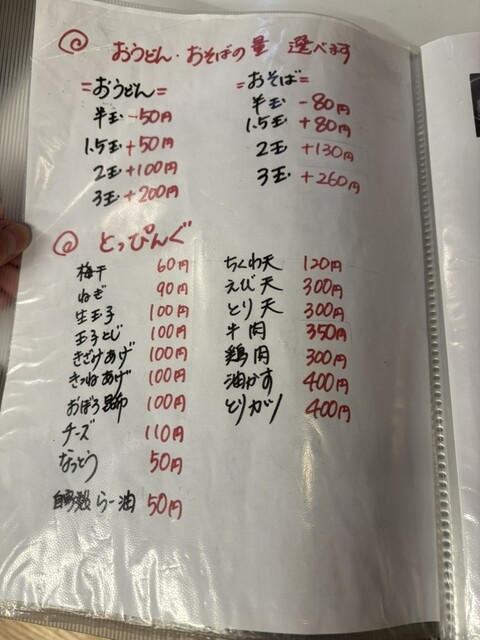 おうどん・おそばの量 選べます
=おうどん=
半玉 -50円
1.5玉 +50円
2玉 +100円
3玉 +200円
=おそば=
半玉 -80円
1.5玉 +80円
2玉 +130円
3玉 +260円
とっぴんぐ
梅干 60円
ねぎ 90円
生玉子 100円
玉子とじ 100円
きざみあげ 100円
きつねあげ 100円
おぼろ昆布 100円
チーズ 110円
なっとう 50円
自家製 らー油 50円
ちくわ天 120円
えび天 300円
とり天 300円
牛肉 350円
鶏肉 300円
油かす 400円
とりカツ 400円